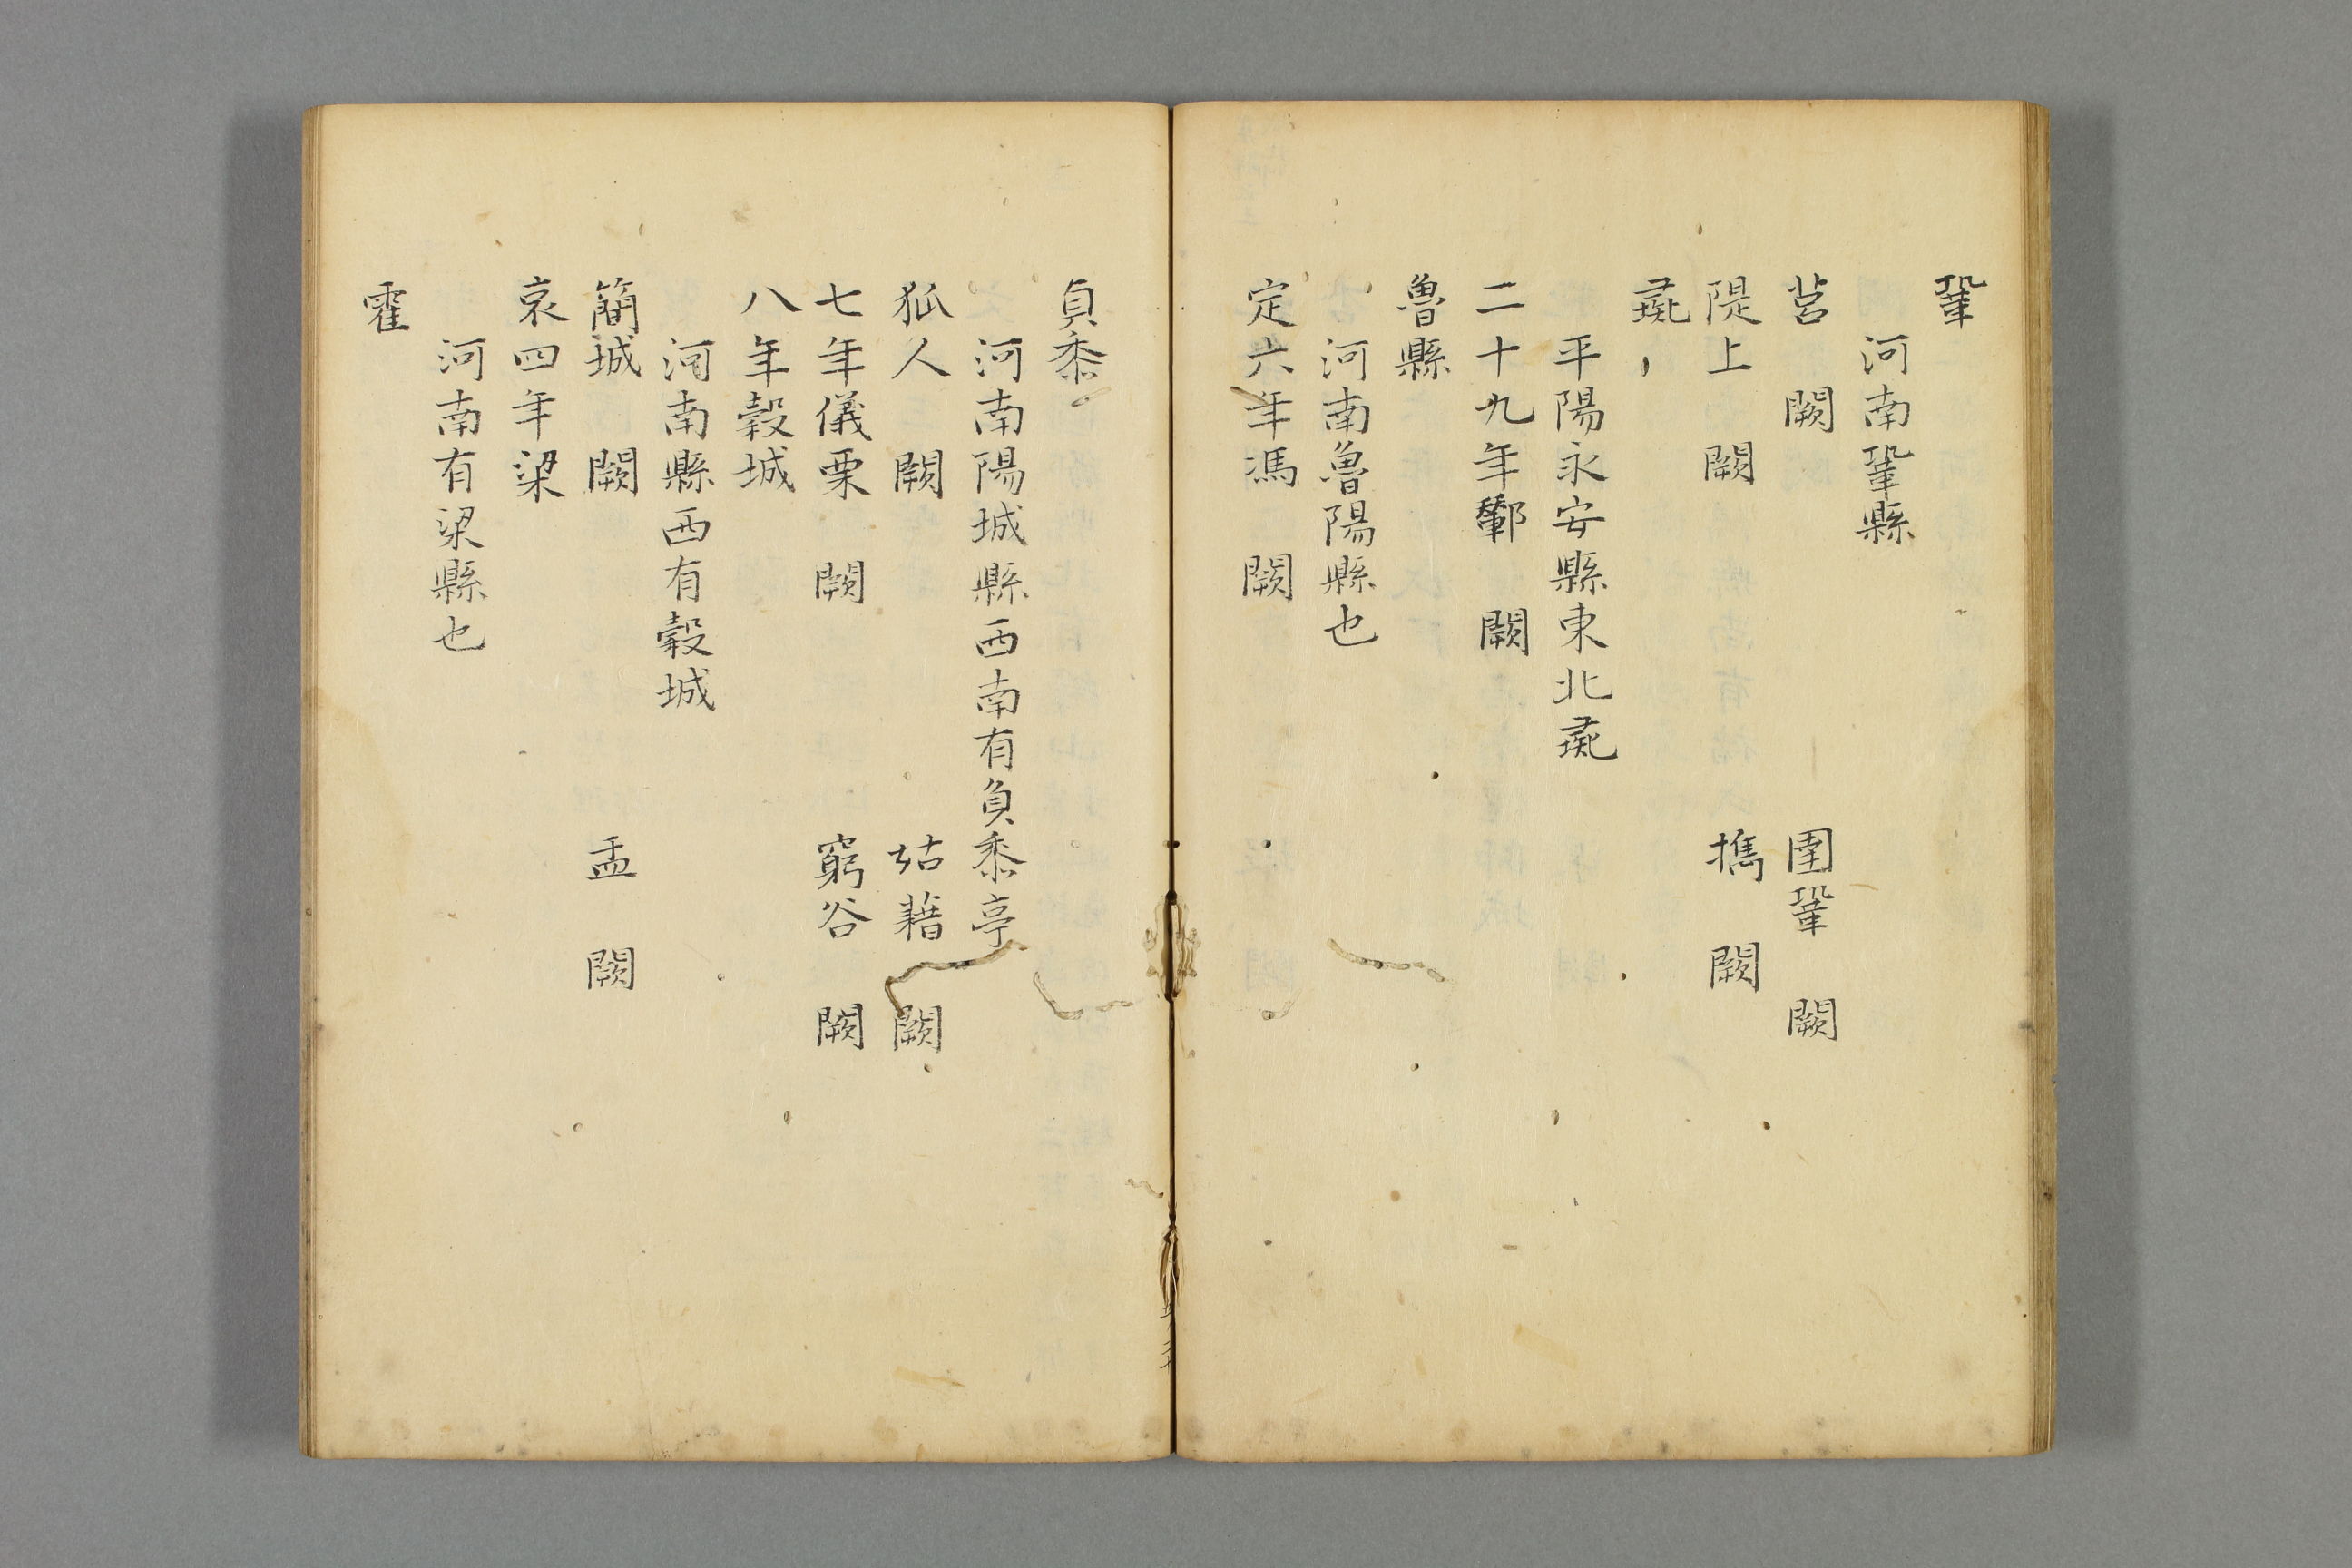 鞏
河南鞏縣
莒　闕　圉鞏　闕
隄上　闕　携　闕
彘
平陽永安縣東北彘
二十九年鄻　闕
魯縣
河南魯陽縣也
定六年馮　闕
負黍
河南陽城縣西南有負黍亭
狐人　闕　姑藉　闕
七年儀栗　闕　窮谷　闕
八年穀城
河南縣西有穀城
簡城　闕　盂　闕
哀四年梁
河南有梁縣也
霍